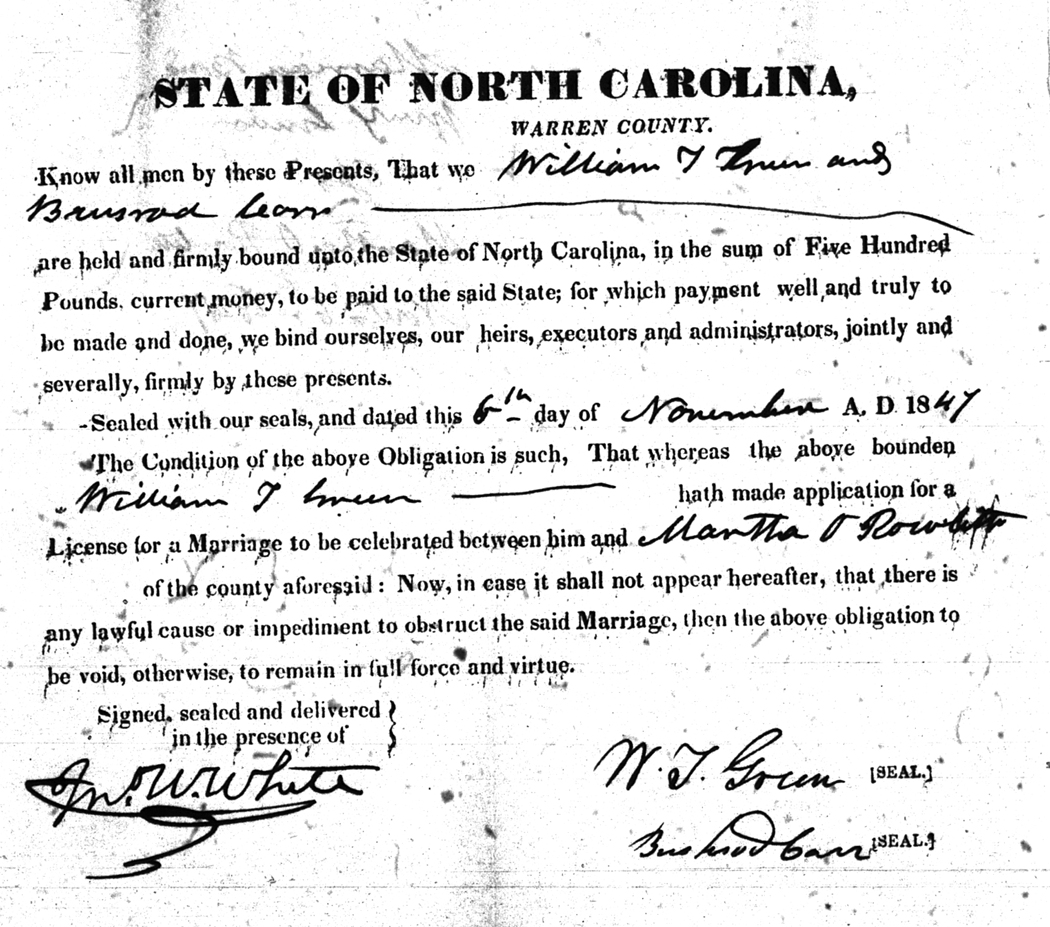 STATE OF NORTH CAROLINA,
WARREN COUNTY.
Know all men by these Presents, That we William T Green and
Brusrod Carr
are held and firmly bound unto the State of North Carolina, in the sum of Five Hundred
Pounds. current money, to be paid to the said State; for which payment well and truly to
be made and done, we bind ourselves, our heirs, executors and administrators, jointly and
severally, firmly by these presents.
Sealed with our seals, and dated this 6th day of November A. D. 1847
The Condition of the above Obligation is such, That whereas the above bounden
William T Green hath made application for a
License for a Marriage to be celebrated between him and Martha
of the county aforesaid: Now, in case it shall not appear hereafter, that there is
any lawful cause or impediment to obstruct the said Marriage, then the above obligation to
be void, otherwise, to remain in full force and virtue.
Signed, sealed and delivered }
in the presence of
Jno. W. White
W. T. Green [SEAL.]
Bushrod Carr [SEAL.]